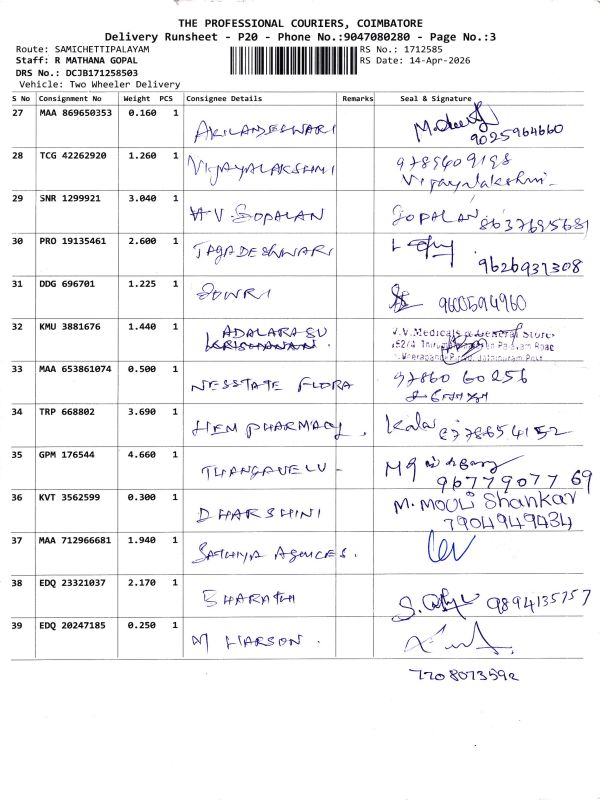 THE PROFESSIONAL COURIERS, COIMBATORE
Delivery Runsheet - P20 - Phone No.:9047080280 - Page No.:3
Route: SAMICHETTIPALAYAM
RS No.: 1712585
Staff: R MATHANA GOPAL
RS Date: 14-Apr-2026
DRS No.: DCJB171258503
Vehicle: Two Wheeler Delivery
S No Consignment No Weight PCS Consignee Details Remarks Seal & Signature
27 MAA 869650353 0.160 1 AKILANDESWARI
9025964660
28 TCG 42262920 1.260 1 VIJAYALAKSHMI
Vijayalakshmi
29 SNR 1299921 3.040 1 V. GOPALAN GOPALAN 8637695681
30 PRO 19135461 2.600 1 JAGADESHWARI
9626937308
31 DDG 696701 1.225 1 GOWRI 9600594960
32 KMU 3881676 1.440 1 ADALARASU
V.V. Medicals & General Store
33 MAA 653861074 0.500 1 NESSTATE FLORA 97860 60256
34 TRP 668802 3.690 1 HEM PHARMACY. Kala 6778654152
35 GPM 176544 4.660 1 THANGAVELU -
9677907769
36 KVT 3562599 0.300 1 DHARSHINI M. MOULI Shankar
7904949434
37 MAA 712966681 1.940 1 SATHIYA AGENCES.
38 EDQ 23321037 2.170 1 BHARATH 9894135757
39 EDQ 20247185 0.250 1 M HARSON.
7708073592